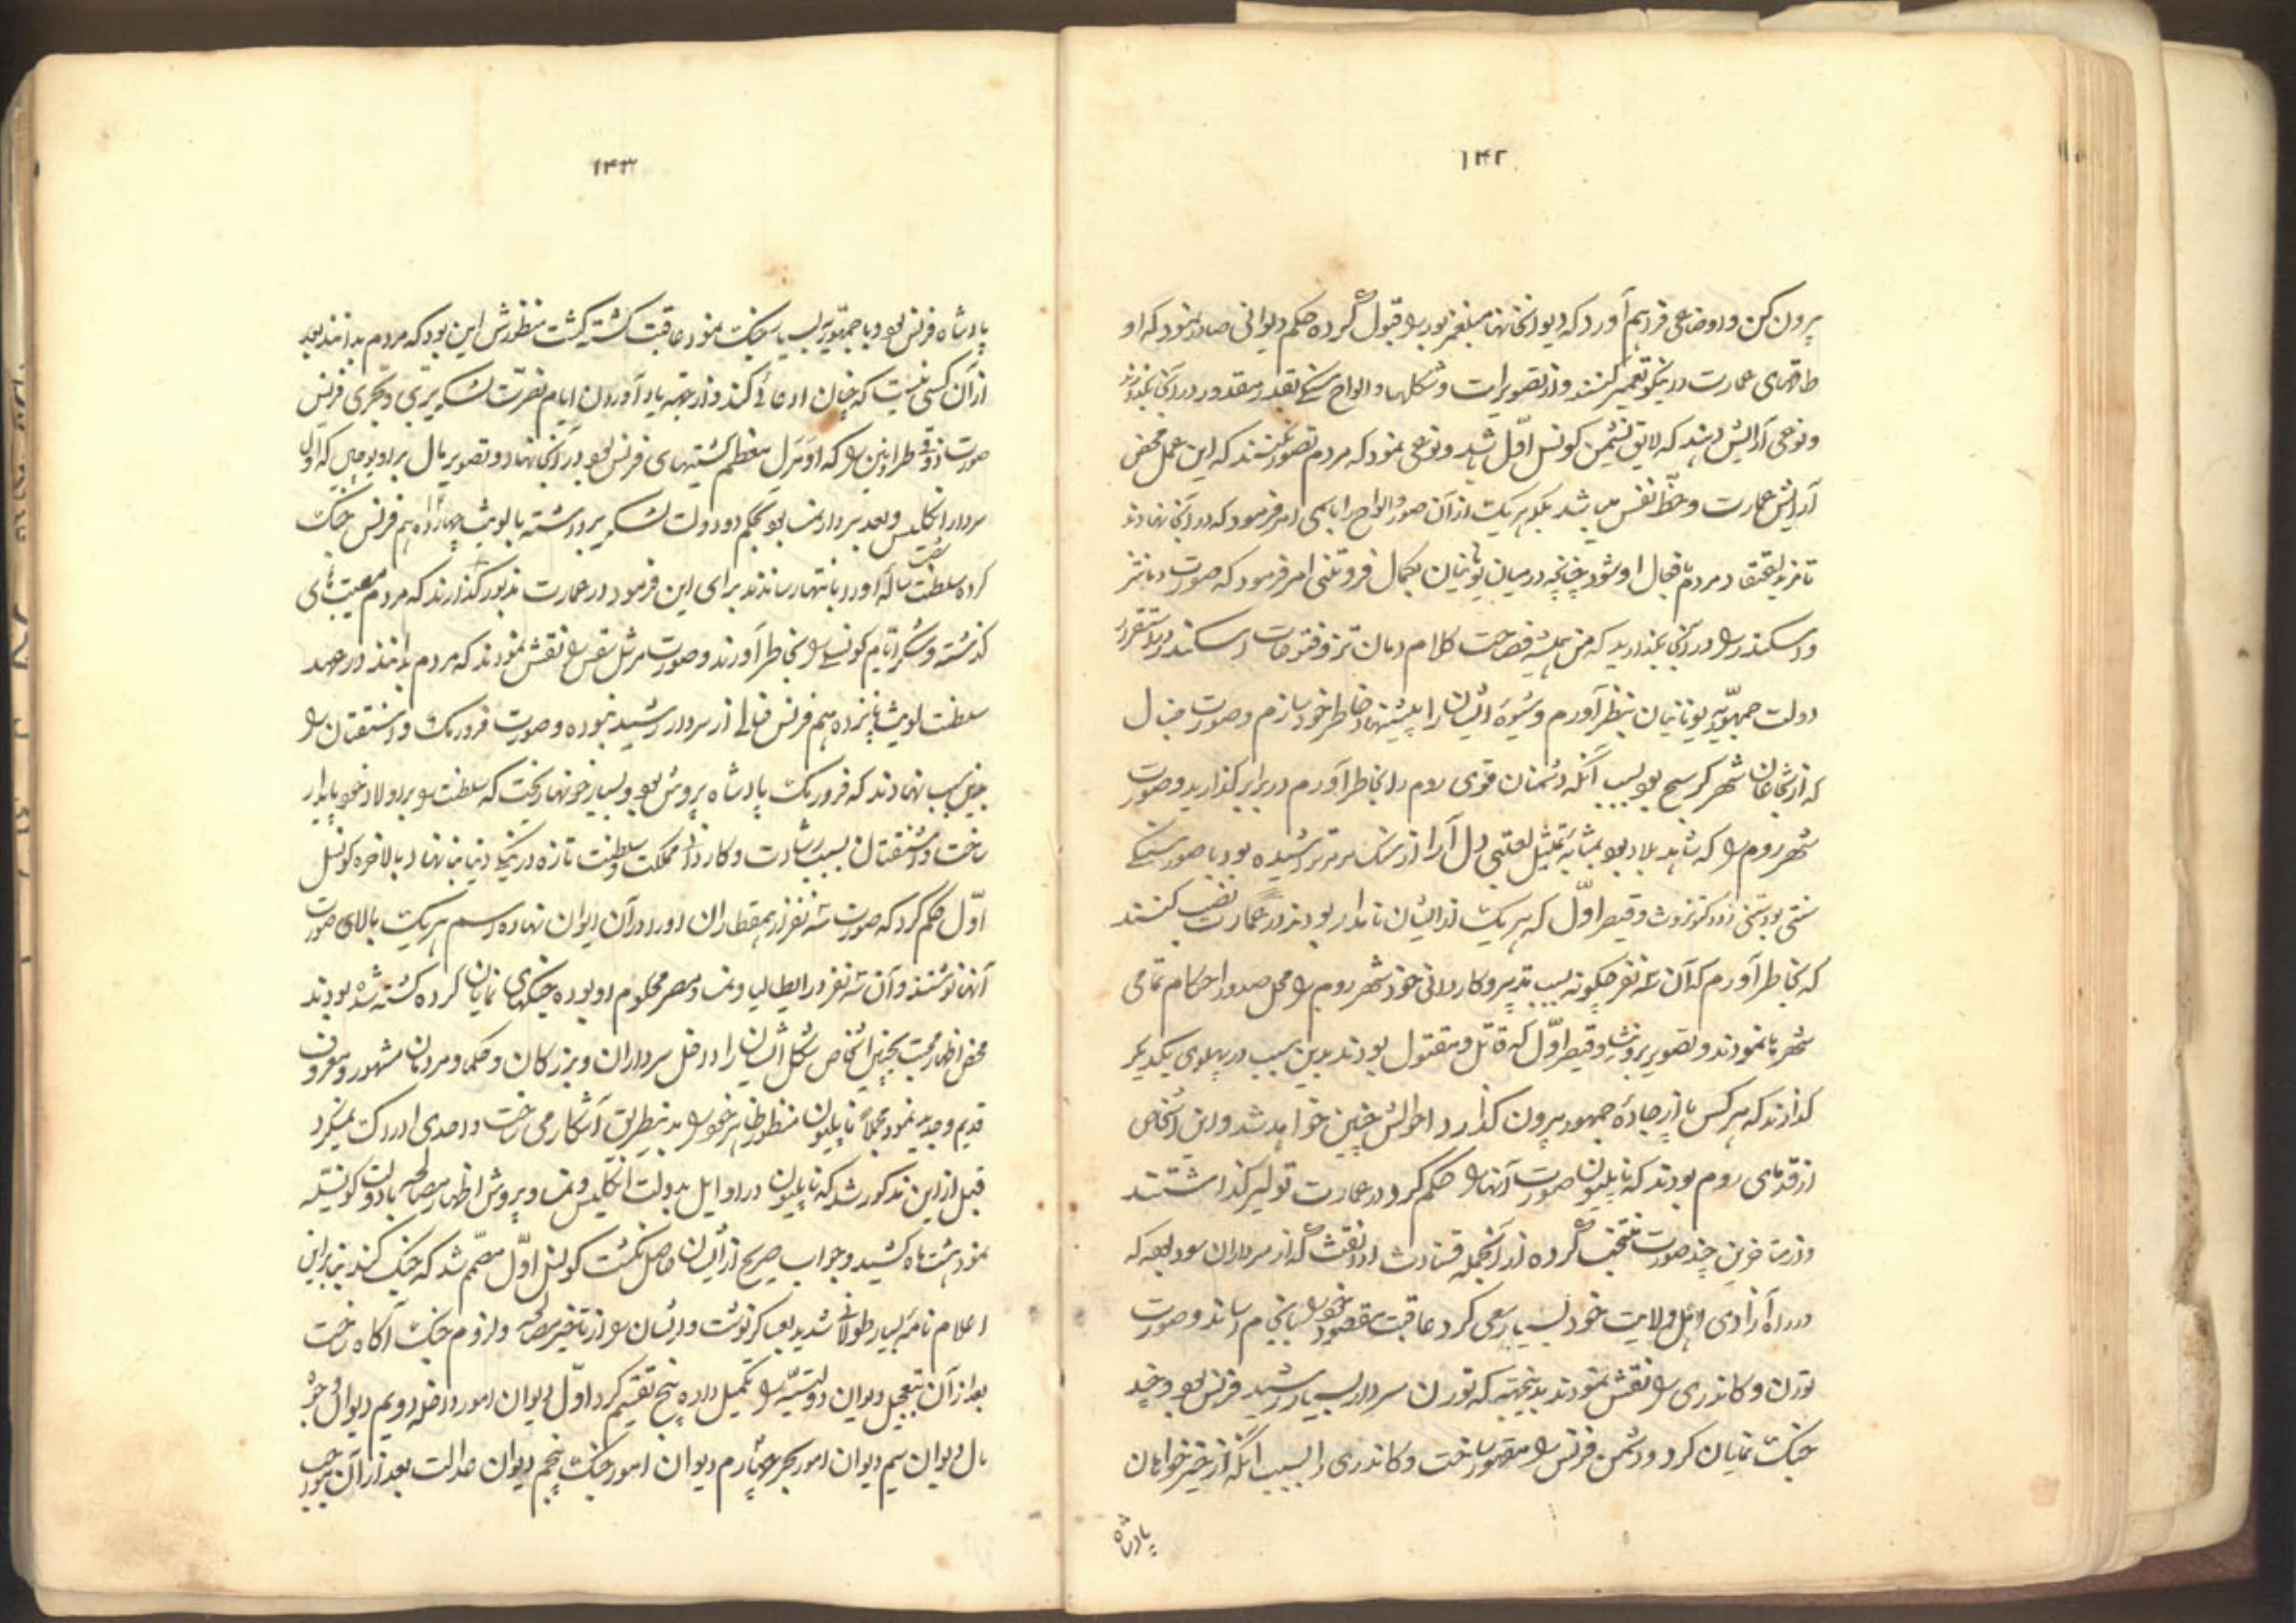 ۱۴۲
بیرون کن و اوضاعی فراهم آورد که دیوانخانها مبلغ مزبور را قبول کرده حکم دیوانی صادر نمود که او
طاقهای عمارت را نیکو تعمیر کنند و از تصویرات و شکلها و الواح سنگی بقدر مقدور در آنجا بگذارند
و نوعی آرایش دهند که لایق نشیمن کونسل اوّل باشد و نوعی نمود که مردم تصور کنند که این عمل محض
آرایش عمارت و حظّ نفس می باشد بلکه هر یک از آن صور و الواح را باسمی امر فرمود که در آنجا نهادند
تا مزید اعتقاد مردم بافعال او شود چنانچه در میان یونانیان بکمال فروتنی امر فرمود که صورت دمانتنز
و اسکندر را در آنجا بگذارید که من همیشه فصاحت کلام دمان تنز و فتوحات اسکندر را در استقرار
دولت جمهوریه یونانیان بنظر آورم و شیوه ایشان را پیشنهاد خاطر خود سازم و صورت حنبال
که از شجاعان شهر کرسج بود بسبب آنکه دشمنان قوی روم را بخاطر آورم در برابر گذارید و صورت
شهر روم را که شاهد بلاد بود بمثابه تمثیل لعبتی دل آرا از سنک مرمر تراشیده بود با صور سنکی
که بخاطر آورم که آن سه نفر چگونه بسبب تدبیر و کاردانی خود شهر روم را محل صدور احکام تمامی
شهرها نمودند و تصویر بروتش و قیصر اوّل که قاتل و مقتول بودند بدین سبب در پهلوی یکدیگر
گذارند که هر کس پا از جادّه جمهور بیرون گذارد احوالش چنین خواهد شد و این اشخاص
از قدمای روم بودند که ناپلیون صورت آنها را حکم کرد در عمارت تولیر گذاشتند
و از متأخرین چند صورت منتخب کرده از آنجمله قستادث ادلفث که از سرداران سود بود که
در راه آزادی اهل ولایت خود بسیار سعی کرد عاقبت مقصود خود را بانجام رساند و صورت
تورن و کاندری را نقش نمودند بدینجهة که تورن سردار بسیار رشید فرنس بود و چند
جنک نمایان کرد و دشمن فرنس را مقهور ساخت و کاندری را بسبب آنکه از خیرخواهان
پادشاه
۱۴۳
پادشاه فرنس بود و با جمهوریه بسیار جنک نمود عاقبت کشته گشت منظورش این بود که مردم بدانند بعد
از آن کسی نیست که چنان ادعائی کند و از جهة یاد آوردن ایام نصرت لشکر بری و بحری فرنس
سردار انکلیس و بعد سردار نمسا بود بحکم دو دولت لشکر برداشته با لویث چهارده هم فرنس جنک
گذشته و شکر ایّام کونسلی را بخاطر آورند و صورت مرشل سقس را نقش نمودند که مردم بدانند در عهد
سلطنت لویث پانزده هم فرنس خالی از سردار رشید نبوده و صورت فردریک و واشنقتان را
بدین سبب نهادند که فردریک پادشاه پروش بود و بسیار خونها ریخت که سلطنت را بر اولاد خود پایدار
ساخت و واشنقتان بسبب رشادت و کاردانی مملکت و سلطنت تازه در ینکی دنیا بنا نهاد بالاخره کونسل
اوّل حکم کرد که صورت سه نفر از همقطاران او را در آن ایوان نهاده اسم هر یک بالای صورت
آنها نوشتند و آن سه نفر در ایطالیا و نمسا و مصر محکوم او بوده جنکهای نمایان کرده کشته شده بودند
محض اظهار محبت بچنین اشخاص شکل ایشان را داخل سرداران و بزرگان و حکما و مردمان مشهور و معروف
قدیم و جدید نمود مجملاً ناپلیون منظور خاطر خود را بدینطریق آشکار می ساخت و احدی ادراک نمیکرد
قبل از این مذکور شد که ناپلیون در اوایل بدولت انکلیس و نمسا و پروش اظهار مصالحه با دولت کونسله
نمود هشت ماه کشید و جواب صریح از ایشان حاصل نکشت کونسل اوّل مصمّم شد که جنک کند بنابراین
اعلام نامه بسیار طولانی شدید بعساکر نوشت و ایشان را از تأخیر مصالحه و لزوم جنک آگاه ساخت
بعد از آن بتعجیل دیوان دولتیّه را تکمیل داده پنج تقسیم کرد اوّل دیوان امور داخله دویم دیوان وجوه
مال دیوان سیم دیوان امور بحر چهارم دیوان امور جنک پنجم دیوان عدالت بعد از آن بموجب